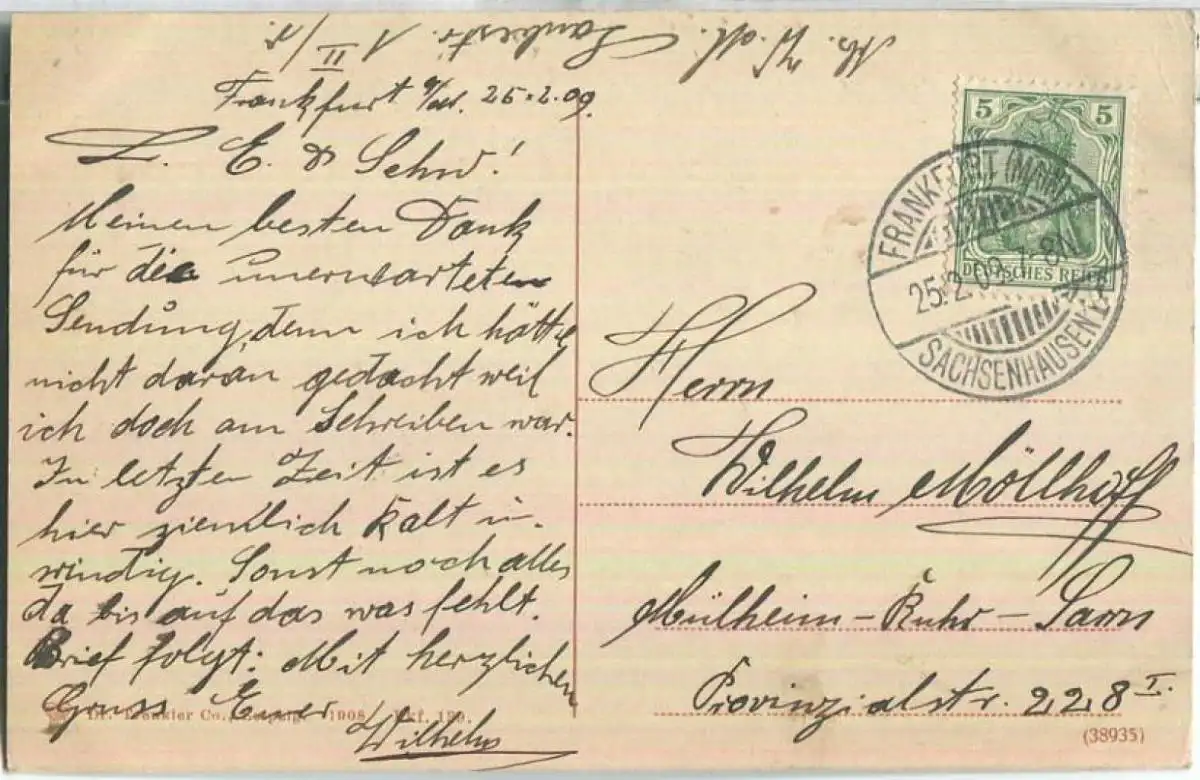 Frankfurt a/M. 25.2.09.
L. E. & Schw!
Meinen besten Dank
für die unerwarteten
Sendung, denn ich hätte
nicht daran gedacht weil
ich doch am Schreiben war.
In letzten Zeit ist es
hier ziemlich kalt u.
windig. Sonst noch alles
da bis auf das was fehlt.
Brief folgt: Mit herzlichen
Gruss Euer
Wilhelm
Dr. Trenkler Co., Leipzig. 1908. Fkf. 159.
II
5 5
DEUTSCHES REICH
FRANKFURT (MAIN)
25.2.09. 7-8N
SACHSENHAUSEN
Herrn
Wilhelm Möllhoff
Mülheim-Ruhr-Saarn
Provinzialstr. 228 I.
(38935)